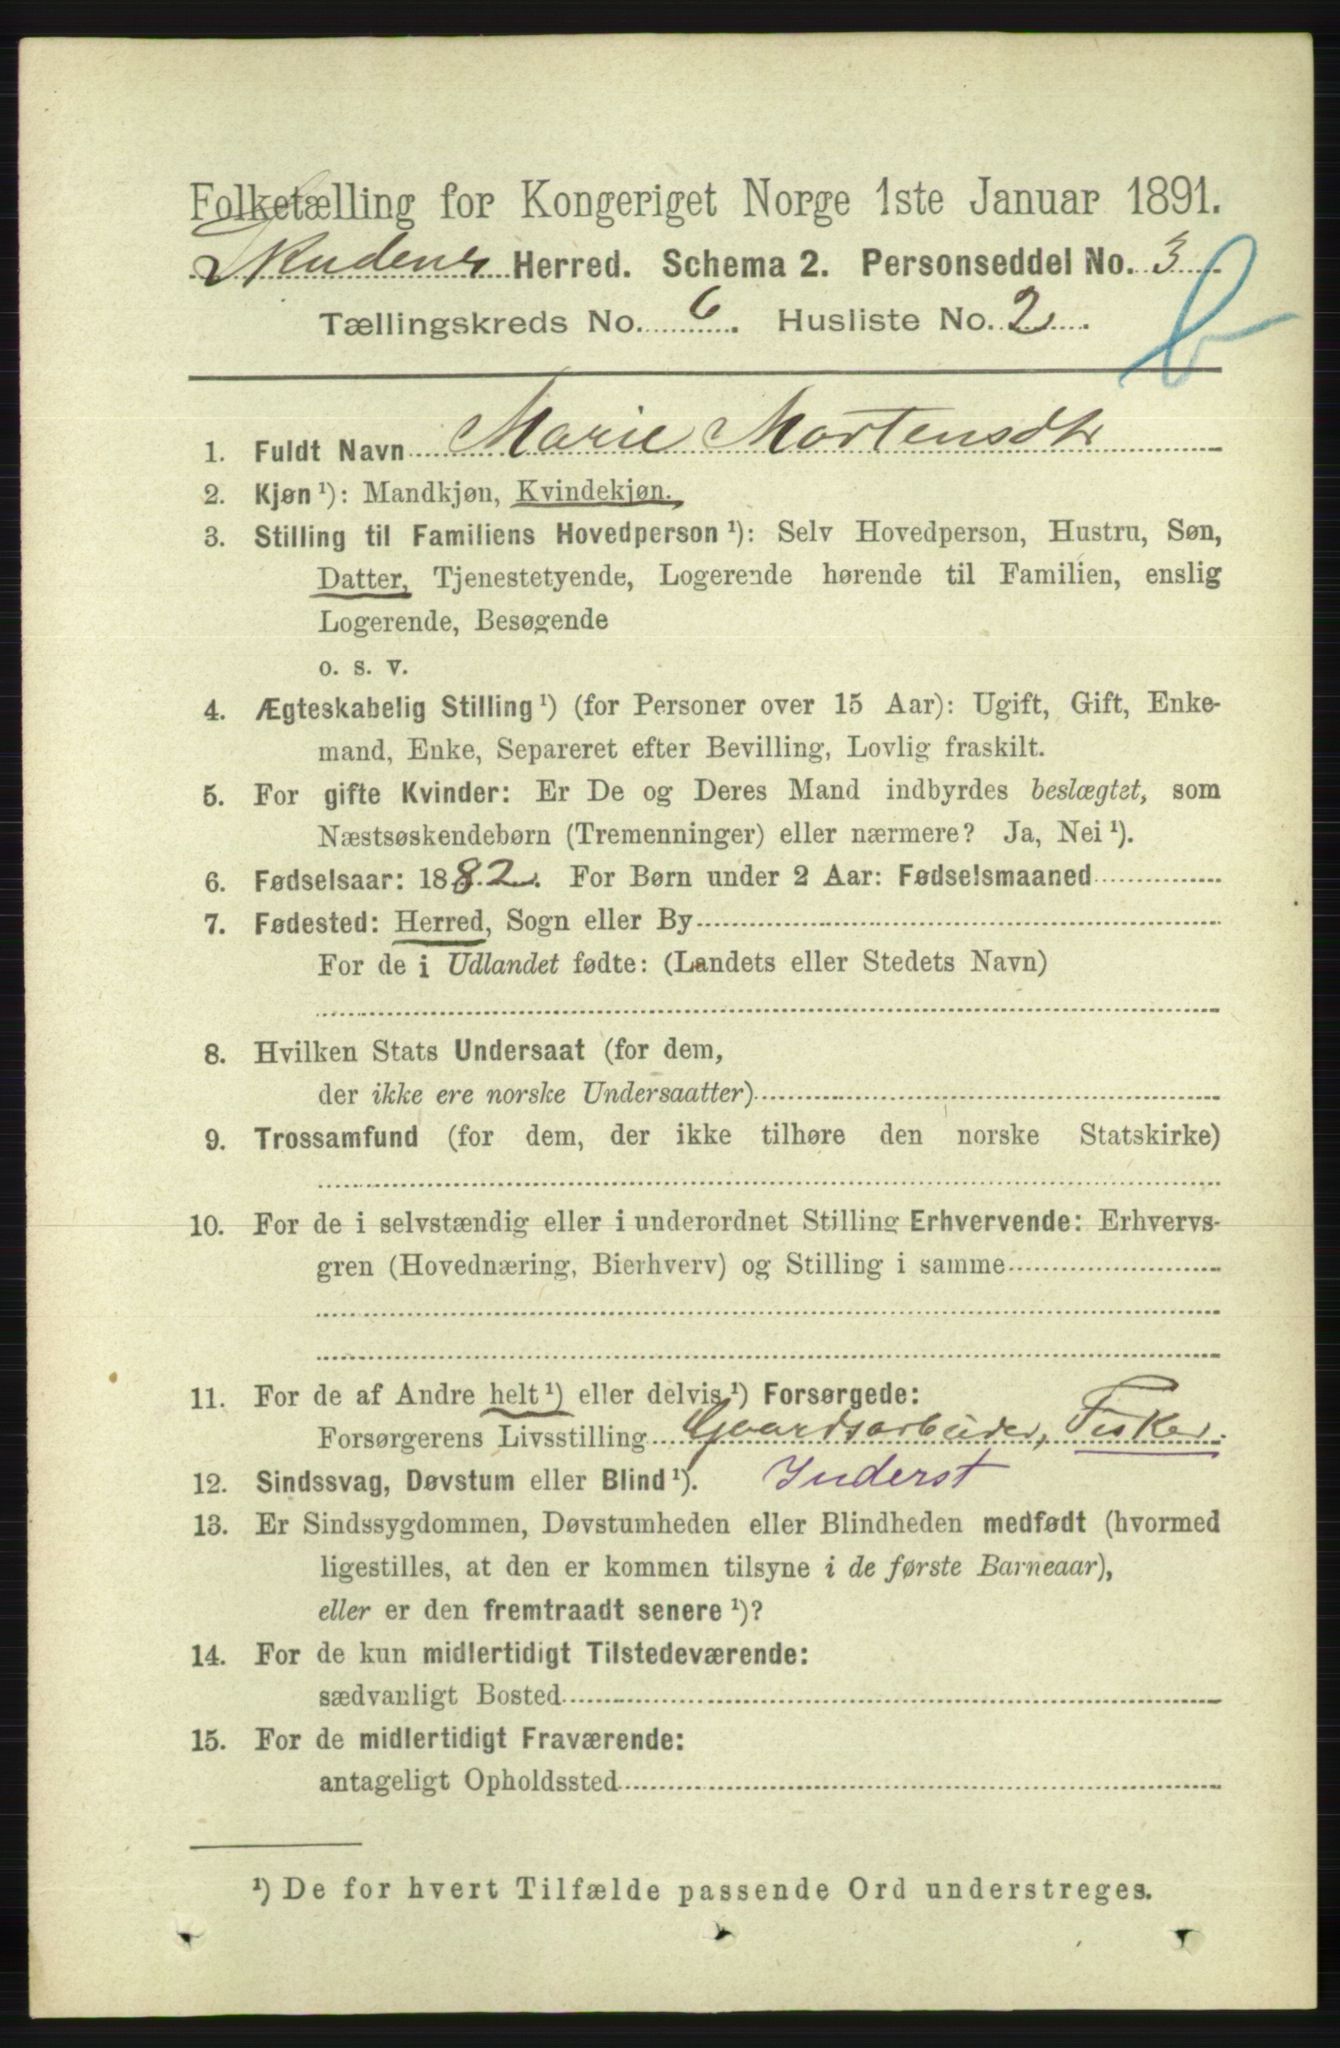 Folketælling for Kongeriget Norge 1ste Januar 1891.
Skudenes Herred. Schema 2. Personseddel No. 3
Tællingskreds No. 6. Husliste No. 2.
b
1. Fuldt Navn Marie Mortensdtr
2. Kjøn ¹): Mandkjøn, Kvindekjøn.
3. Stilling til Familiens Hovedperson ¹): Selv Hovedperson, Hustru, Søn,
Datter, Tjenestetyende, Logerende hørende til Familien, enslig
Logerende, Besøgende
o. s. v.
4. Ægteskabelig Stilling ¹) (for Personer over 15 Aar): Ugift, Gift, Enke-
mand, Enke, Separeret efter Bevilling, Lovlig fraskilt.
5. For gifte Kvinder: Er De og Deres Mand indbyrdes beslægtet, som
Næstsøskendebørn (Tremenninger) eller nærmere? Ja, Nei ¹).
6. Fødselsaar: 1882. For Børn under 2 Aar: Fødselsmaaned
7. Fødested: Herred, Sogn eller By
For de i Udlandet fødte: (Landets eller Stedets Navn)
8. Hvilken Stats Undersaat (for dem,
der ikke ere norske Undersaatter)
9. Trossamfund (for dem, der ikke tilhøre den norske Statskirke)
10. For de i selvstændig eller i underordnet Stilling Erhvervende: Erhvervs-
gren (Hovednæring, Bierhverv) og Stilling i samme
11. For de af Andre helt ¹) eller delvis ¹) Forsørgede:
Forsørgerens Livsstilling Gaardsarbeider, Fisker.
12. Sindssvag, Døvstum eller Blind ¹). Inderst
13. Er Sindssygdommen, Døvstumheden eller Blindheden medfødt (hvormed
ligestilles, at den er kommen tilsyne i de første Barneaar),
eller er den fremtraadt senere ¹)?
14. For de kun midlertidigt Tilstedeværende:
sædvanligt Bosted
15. For de midlertidigt Fraværende:
antageligt Opholdssted
¹) De for hvert Tilfælde passende Ord understreges.